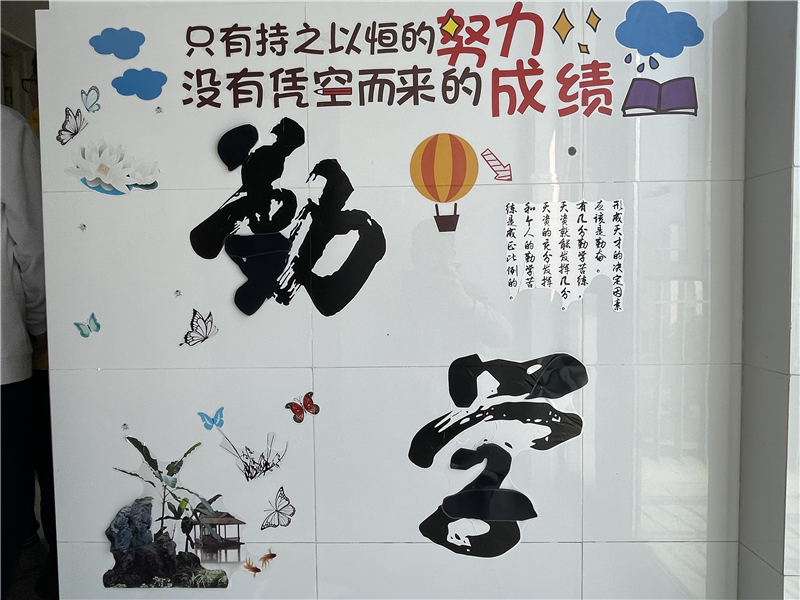 只有持之以恒的努力
没有凭空而来的成绩
勤
学
形成天才的决定因素
应该是勤奋。
有几分勤学苦练，
天资就能发挥几分。
天资的充分发挥
和个人的勤学苦
练是成正比例的。